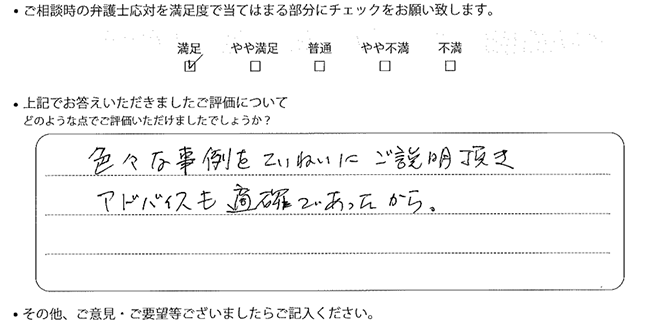 ・ご相談時の弁護士応対を満足度で当てはまる部分にチェックをお願い致します。
満足 やや満足 普通 やや不満 不満
☑ □ □ □ □
・上記でお答えいただきましたご評価について
どのような点でご評価いただけましたでしょうか？
色々な事例をていねいにご説明頂き
アドバイスも適確であったから。
・その他、ご意見・ご要望等ございましたらご記入ください。